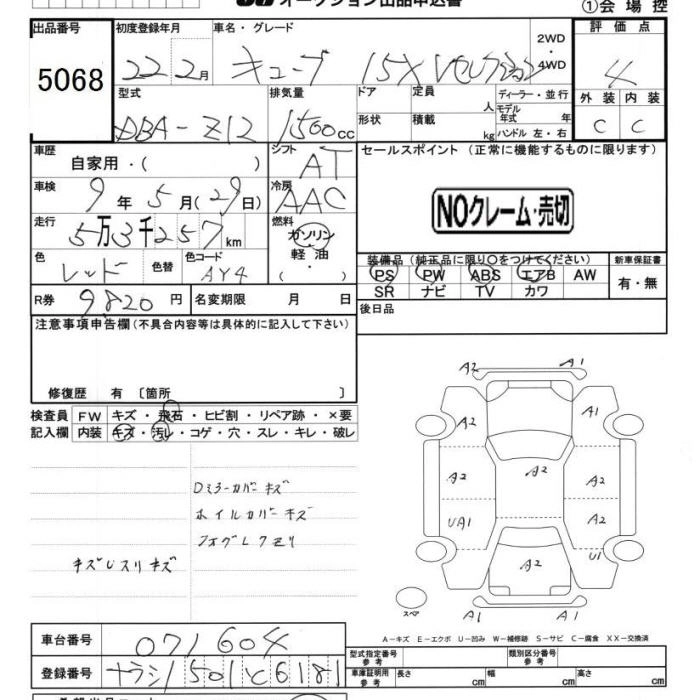 オークション出品申込書
①会場控
出品番号
5068
初度登録年月
22 2月
車名・グレード
キューブ 15X Vセレクション
2WD・4WD
評価点
4
外装 内装
C C
型式
DBA-Z12
排気量
1500cc
ドア
形状
定員 人
積載 kg
ディーラー・並行
モデル年式 年
ハンドル 左・右
車歴
自家用・( )
シフト
AT
車検
9年5月(29日)
冷房
AAC
走行
5万3千257km
燃料
ガソリン・軽油・( )
色
レッド
色替
色コード
AY4
R券 9820円
名変期限 月 日
セールスポイント (正常に機能するものに限ります)
NOクレーム・売切
装備品 (純正品に限り○をつけてください)
PS PW ABS エアB AW
SR ナビ TV カワ
新車保証書
有・無
後日品
注意事項申告欄(不具合内容等は具体的に記入して下さい)
修復歴 有〔箇所 〕
検査員記入欄
FW キズ・飛石・ヒビ割・リペア跡・×要
内装 キズ・汚レ・コゲ・穴・スレ・キレ・破レ
Dミラーカバーキズ
ホイルカバーキズ
フォグLクモリ
キズUスリキズ
A2 A1
A2 A1
A2 A2 A2
UA1 A2
A2 U1
A1 A1
スペア
A-キズ E-エクボ U-凹み W-補修跡 S-サビ C-腐食 XX-交換済
車台番号 071604
登録番号 ナラシ1501と6181
型式指定番号 参考
類別区分番号 参考
車庫証明用 参考
長さ cm 幅 cm 高さ cm